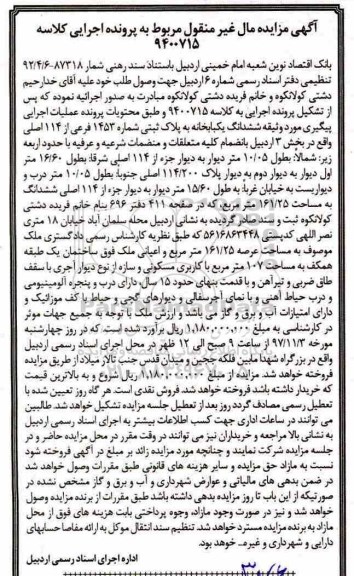 آگهی مزایده مال غیر منقول مربوط به پرونده اجرایی کلاسه
۹۴۰۰۷۱۵
بانک اقتصاد نوین شعبه امام خمینی اردبیل باستناد سند رهنی شمار ۸۷۳۱۸-۹۲/۴/۶
تنظیمی دفتر اسناد رسمی شماره ۶ اردبیل جهت وصول طلب خود علیه آقای خدارحیم
دشتی کولانکوه و خانم فریده دشتی کولانکوه مبادرت به صدور اجرائیه نموده که پس
از تشکیل پرونده اجرایی به کلاسه ۹۴۰۰۷۱۵ و طبق محتویات پرونده عملیات اجرایی
پیگیری مورد وثیقه ششدانگ یکبابخانه به پلاک ثبتی شماره ۱۴۵۳ فرعی از ۱۱۴ اصلی
واقع در بخش ۳ اردبیل بانضمام کلیه متعلقات و منضمات شرعیه و عرفیه با حدود اربعه
زیر: شمالا: بطول ۱۰/۰۵ متر دیوار به دیوار جزء از ۱۱۴ اصلی شرقا: بطول ۱۶/۶۰ متر
اول دیوار به دیوار دوم به دیوار پلاک ۱۱۴/۲۰۰ اصلی جنوبا: بطول ۱۰/۰۵ متر درب و
دیواریست به خیابان غربا: به طول ۱۵/۶۰ متر دیوار به دیوار جزء از ۱۱۴ اصلی ششدانگ
به مساحت ۱۶۱/۲۵ متر مربع که در صفحه ۴۱۱ دفتر ۶۹۶ بنام خانم فریده دشتی
کولانکوه ثبت و سند صادر گردیده به نشانی اردبیل محله سلمان آباد خیابان ۱۸ متری
نصر اللهی کدپستی ۵۶۱۶۸۶۳۴۴۸ که طبق نظریه کارشناس رسمی دادگستری ملک
موصوف به مساحت عرصه ۱۶۱/۲۵ متر مربع و اعیانی ملک فوق ساختمان یک طبقه
همکف به مساحت ۱۰۷ متر مربع با کاربری مسکونی و سازه از نوع دیوار آجری با سقف
طاق ضربی و تیرآهن و با قدمت بنهای حدود ۱۵ سال، دارای درب و پنجره آلومینیومی
و درب حیاط آهنی و با نمای آجرسفالی و دیوارهای گچی و حیاط با کف موزائیک و
دارای امتیازات آب و برق و گاز می باشد و ارزش ملک با توجه به جمیع جهات موثر
در کارشناسی به مبلغ ۱,۱۸۰,۰۰۰,۰۰۰ ریال برآورد شده است. که در روز چهارشنبه
مورخه ۹۷/۱۱/۳ از ساعت ۹ صبح الی ۱۲ ظهر در محل اجرای اسناد رسمی اردبیل
واقع در بزرگراه شهدا مابین فلکه ججین و میدان قدس جنب تالار میلاد از طریق مزایده
فروخته خواهد شد. مزایده از مبلغ ۱,۱۸۰,۰۰۰,۰۰۰ ریال شروع و به بالاترین قیمت
که خریدار داشته باشد فروخته خواهد شد. فروش نقدی است. هر گاه روز تعیین شده با
تعطیل رسمی مصادف گردد روز بعد از تعطیل جلسه مزایده تشکیل خواهد شد. طالبین
می توانند در ساعات اداری جهت کسب اطلاعات بیشتر به اجرای اسناد رسمی اردبیل
به نشانی بالا مراجعه و خریداران نیز می توانند در وقت مقرر در محل مزایده حاضر و در
جلسه مزایده شرکت نمایند و چنانچه مورد مزایده زائد بر مبلغ در آگهی فروخته شود
نسبت به مازاد حق مزایده و سایر هزینه های قانونی طبق مقررات وصول خواهد شد
در ضمن بدهی های مالیاتی و عوارض شهرداری و آب و برق و گاز مشخص نشده در
صورتیکه از این باب تا روز مزایده بدهی داشته باشد طبق مقررات از برنده مزایده وصول
خواهد شد و نیز در صورت وجود مازاد، وجوه پرداختی بابت هزینه های فوق از محل
مازاد به برنده مزایده مسترد خواهد شد. تنظیم سند انتقال موکل به ارائه مفاصا حسابهای
دارایی و شهرداری و غیره... خواهد بود.
اداره اجرای اسناد رسمی اردبیل